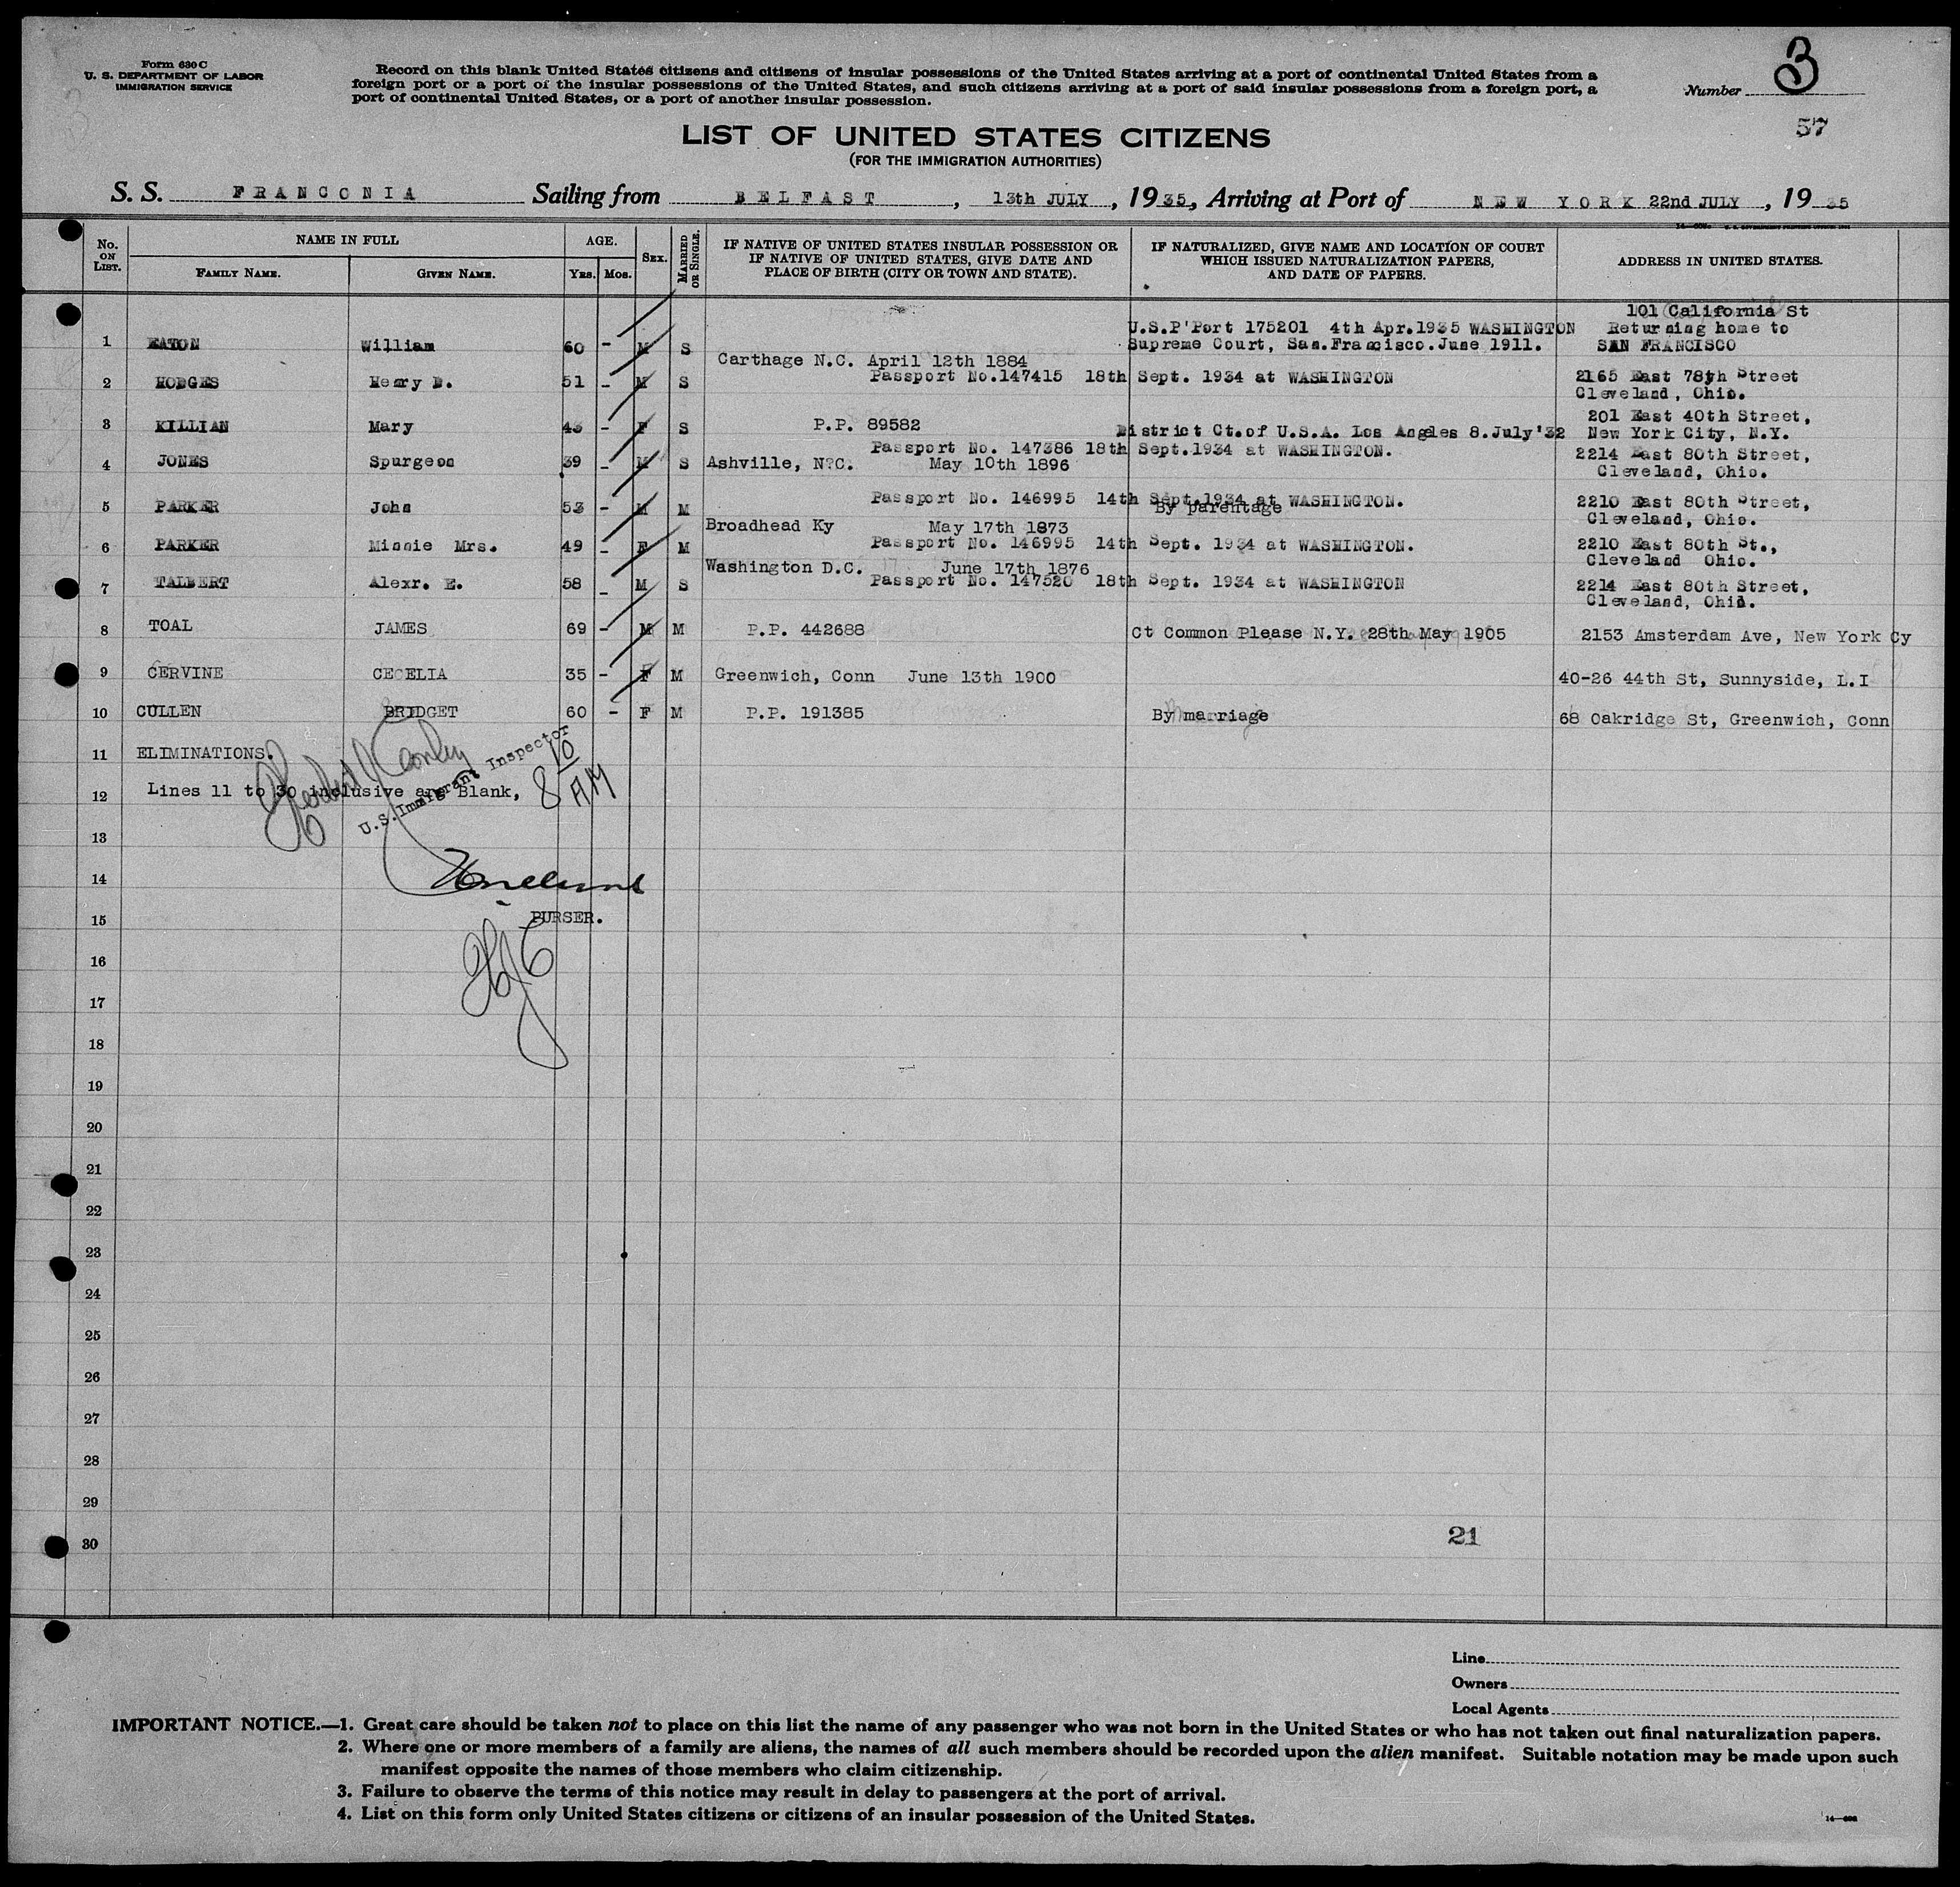 Form 630 C
U. S. DEPARTMENT OF LABOR
IMMIGRATION SERVICE
Record on this blank United States citizens and citizens of insular possessions of the United States arriving at a port of continental United States from a
foreign port or a port of the insular possessions of the United States, and such citizens arriving at a port of said insular possessions from a foreign port, a
port of continental United States, or a port of another insular possession.
Number 3
57
LIST OF UNITED STATES CITIZENS
(FOR THE IMMIGRATION AUTHORITIES)
S. S. FRANCONIA Sailing from BELFAST, 13th JULY, 1935, Arriving at Port of NEW YORK 22nd JULY, 1935
No. ON LIST. NAME IN FULL FAMILY NAME. GIVEN NAME. AGE. YRS. MOS. SEX. MARRIED OR SINGLE. IF NATIVE OF UNITED STATES INSULAR POSSESSION OR IF NATIVE OF UNITED STATES, GIVE DATE AND PLACE OF BIRTH (CITY OR TOWN AND STATE). IF NATURALIZED, GIVE NAME AND LOCATION OF COURT WHICH ISSUED NATURALIZATION PAPERS, AND DATE OF PAPERS. ADDRESS IN UNITED STATES.
101 California St
U.S.P'Port 175201 4th Apr.1935 WASHINGTON Returning home to
1 EATON William 60 - M S Supreme Court, San.Francisco.June 1911. SAN FRANCISCO
Carthage N.C. April 12th 1884
2 HODGES Henry D. 51 - M S Passport No.147415 18th Sept. 1934 at WASHINGTON 2165 East 78th Street
Cleveland, Ohio.
201 East 40th Street,
3 KILLIAN Mary 43 - F S P.P. 89582 District Ct.of U.S.A. Los Angles 8.July'32 New York City, N.Y.
Passport No. 147386 18th Sept.1934 at WASHINGTON. 2214 East 80th Street,
4 JONES Spurgeon 39 - M S Ashville, N.C. May 10th 1896 Cleveland, Ohio.
Passport No. 146995 14th Sept.1934 at WASHINGTON. 2210 East 80th Street,
5 PARKER John 53 - M M By parentage Cleveland, Ohio.
Broadhead Ky May 17th 1873
6 PARKER Minnie Mrs. 49 - F M Passport No. 146995 14th Sept. 1934 at WASHINGTON. 2210 East 80th St.,
Washington D.C. June 17th 1876 Cleveland Ohio.
7 TALBERT Alexr. E. 58 - M S Passport No. 147520 18th Sept. 1934 at WASHINGTON 2214 East 80th Street,
Cleveland, Ohio.
8 TOAL JAMES 69 - M M P.P. 442688 Ct Common Please N.Y. 28th May 1905 2153 Amsterdam Ave, New York Cy
9 CERVINE CECELIA 35 - F M Greenwich, Conn June 13th 1900 40-26 44th St, Sunnyside, L.I
10 CULLEN BRIDGET 60 - F M P.P. 191385 By marriage 68 Oakridge St, Greenwich, Conn
11 ELIMINATIONS.
U.S. Immigrant Inspector
8 10 AM
12 Lines 11 to 30 inclusive are Blank,
13
14
15 PURSER.
16
17
18
19
20
21
22
23
24
25
26
27
28
29
30
21
Line
Owners
Local Agents
IMPORTANT NOTICE.—1. Great care should be taken not to place on this list the name of any passenger who was not born in the United States or who has not taken out final naturalization papers.
2. Where one or more members of a family are aliens, the names of all such members should be recorded upon the alien manifest. Suitable notation may be made upon such
manifest opposite the names of those members who claim citizenship.
3. Failure to observe the terms of this notice may result in delay to passengers at the port of arrival.
4. List on this form only United States citizens or citizens of an insular possession of the United States.